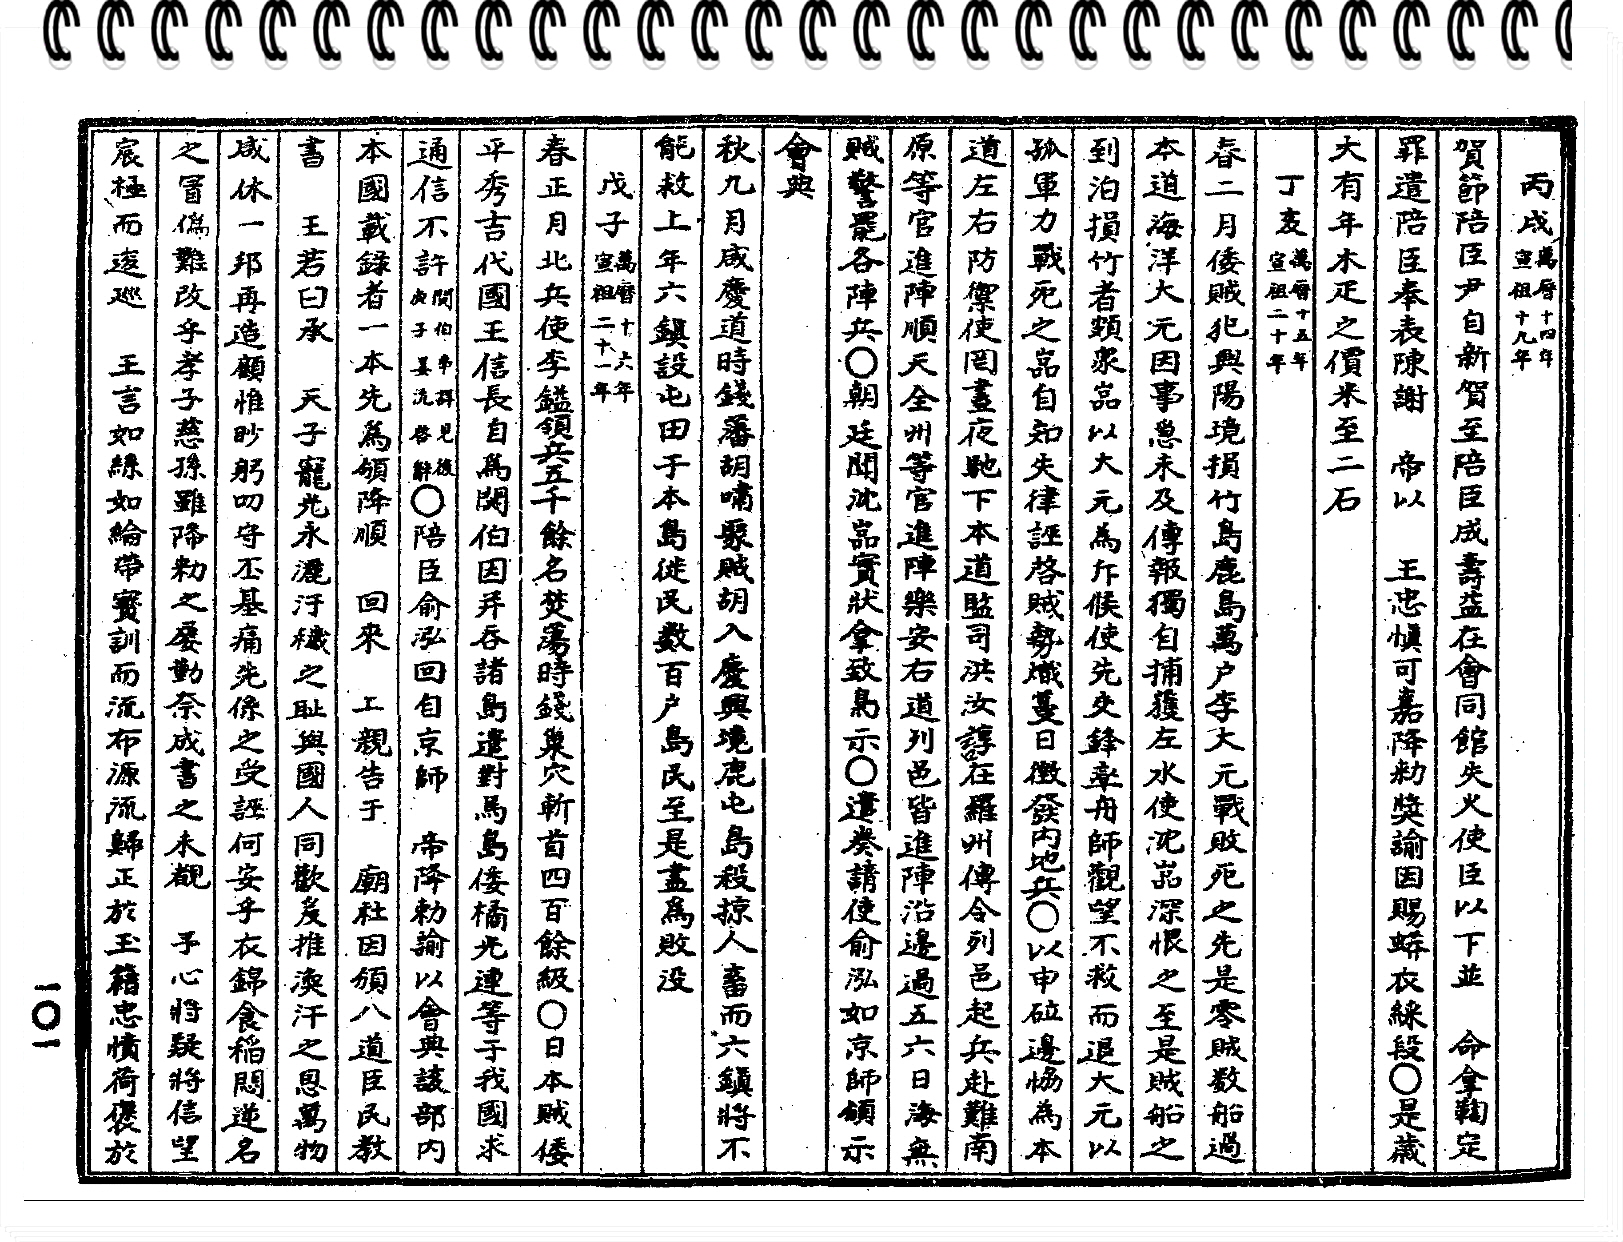 丙戌萬曆十四年宣祖十九年
賀節陪臣尹自新賀至陪臣成壽益在會同館失火使臣以下並 命拿鞫定
罪遣陪臣奉表陳謝 帝以 王忠愼可嘉降勑獎諭因賜蟒衣綵段〇是歲
大有年木疋之價米至二石
丁亥萬曆十五年宣祖二十年
春二月倭賊犯興陽境損竹島鹿島萬户李大元戰敗死之先是零賊数船過
本道海洋大元因事急未及傳報獨自捕獲左水使沈嵓深恨之至是賊船之
到泊損竹者頗衆嵓以大元為斥候使先交鋒率舟師觀望不救而退大元以
孤軍力戰死之嵓自知失律誣啓賊勢熾蔓日徵發內地兵〇以申砬邊協為本
道左右防禦使罔晝夜馳下本道監司洪汝諄在羅州傳令列邑起兵赴難南
原等官進陣順天全州等官進陣樂安右道列邑皆進陣沿邊過五六日海無
賊警罷各陣兵〇朝廷聞沈嵓實狀拿致梟示〇遣奏請使俞泓如京師領示
會典
秋九月咸慶道時錢藩胡嘯聚賊胡入慶興境鹿屯島殺掠人畜而六鎭将不
能救上年六鎭設屯田于本島徙民数百户島民至是盡為敗没
戊子萬曆十六年宣祖二十一年
春正月北兵使李鎰領兵五千餘名焚蕩時錢巢穴斬首四百餘級〇日本賊倭
平秀吉代國王信長自為関伯因并吞諸島遣對馬島倭橘光連等于我國求
通信不許関伯事詳見後庚子姜沆啓辭〇陪臣俞泓回自京師 帝降勑諭以會典該部内
本國載錄者一本先為頒降順 回來 上親告于 廟社因頒八道臣民教
書 王若曰承 天子寵光永灑汙穢之耻與國人同歡爰推渙汗之恩萬物
咸休一邦再造顧惟眇躬叨守丕基痛先係之受誣何安乎衣錦食稻悶逆名
之冒僞難改乎孝子慈孫雖降勑之屡勤奈成書之未覩 予心將疑將信望
宸極而逡巡 王言如絲如綸帶寶訓而流布源流歸正於玉籍忠憤荷褒於
一〇一